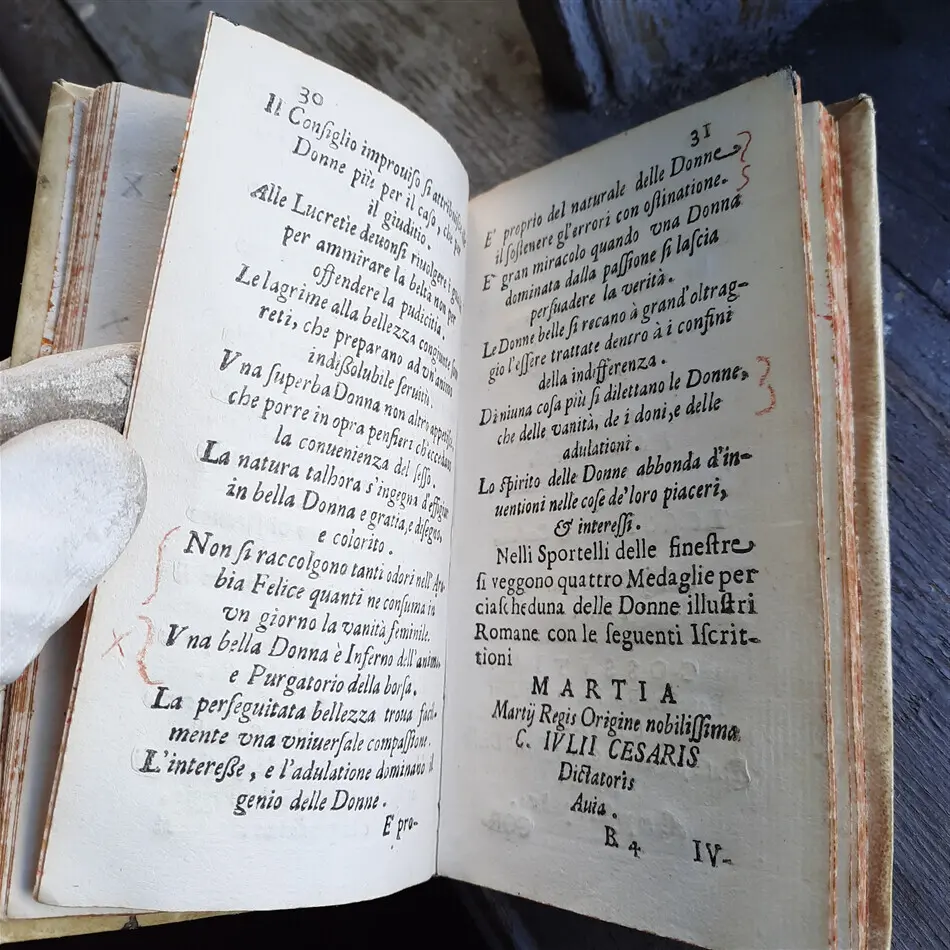 30
Il Consiglio improuiso si attribuisce
Donne più per il caso, che per
il giuditio.
Alle Lucretie deuonsi riuolgere i
per ammirare la beltà non per
offendere la pudicitia.
Le lagrime alla bellezza congiunte son
reti, che preparano ad vn'animo
indissolubile seruitù.
Vna superba Donna non altro
che porre in opra pensieri ch'eccedano
la conuenienza del sesso.
La natura talhora s'ingegna d'effigiar
in bella Donna e gratia, e disegno,
e colorito.
Non si raccolgono tanti odori nell' Ara-
bia Felice quanti ne consuma in
vn giorno la vanità feminile.
Vna bella Donna è Inferno dell'anima,
e Purgatorio della borsa.
La perseguitata bellezza troua facil-
mente vna vniuersale compassione.
L'interesse, e l'adulatione dominano il
genio delle Donne.
E pro-
31
E' proprio del naturale delle Donne
il sostenere gl'errori con ostinatione.
E' gran miracolo quando vna Donna
dominata dalla passione si lascia
persuadere la verità.
Le Donne belle si recano à grand'oltrag-
gio l'essere trattate dentro à i confini
della indifferenza.
Di niuna cosa più si dilettano le Donne,
che delle vanità, de i doni, e delle
adulationi.
Lo spirito delle Donne abbonda d'in-
uentioni nelle cose de' loro piaceri,
& interessi.
Nelli Sportelli delle finestre
si veggono quattro Medaglie per
ciascheduna delle Donne illustri
Romane con le seguenti Iscrit-
tioni
MARTIA
Martij Regis Origine nobilissima
C. IVLII CESARIS
Dictatoris
Auia.
B 4 IV-